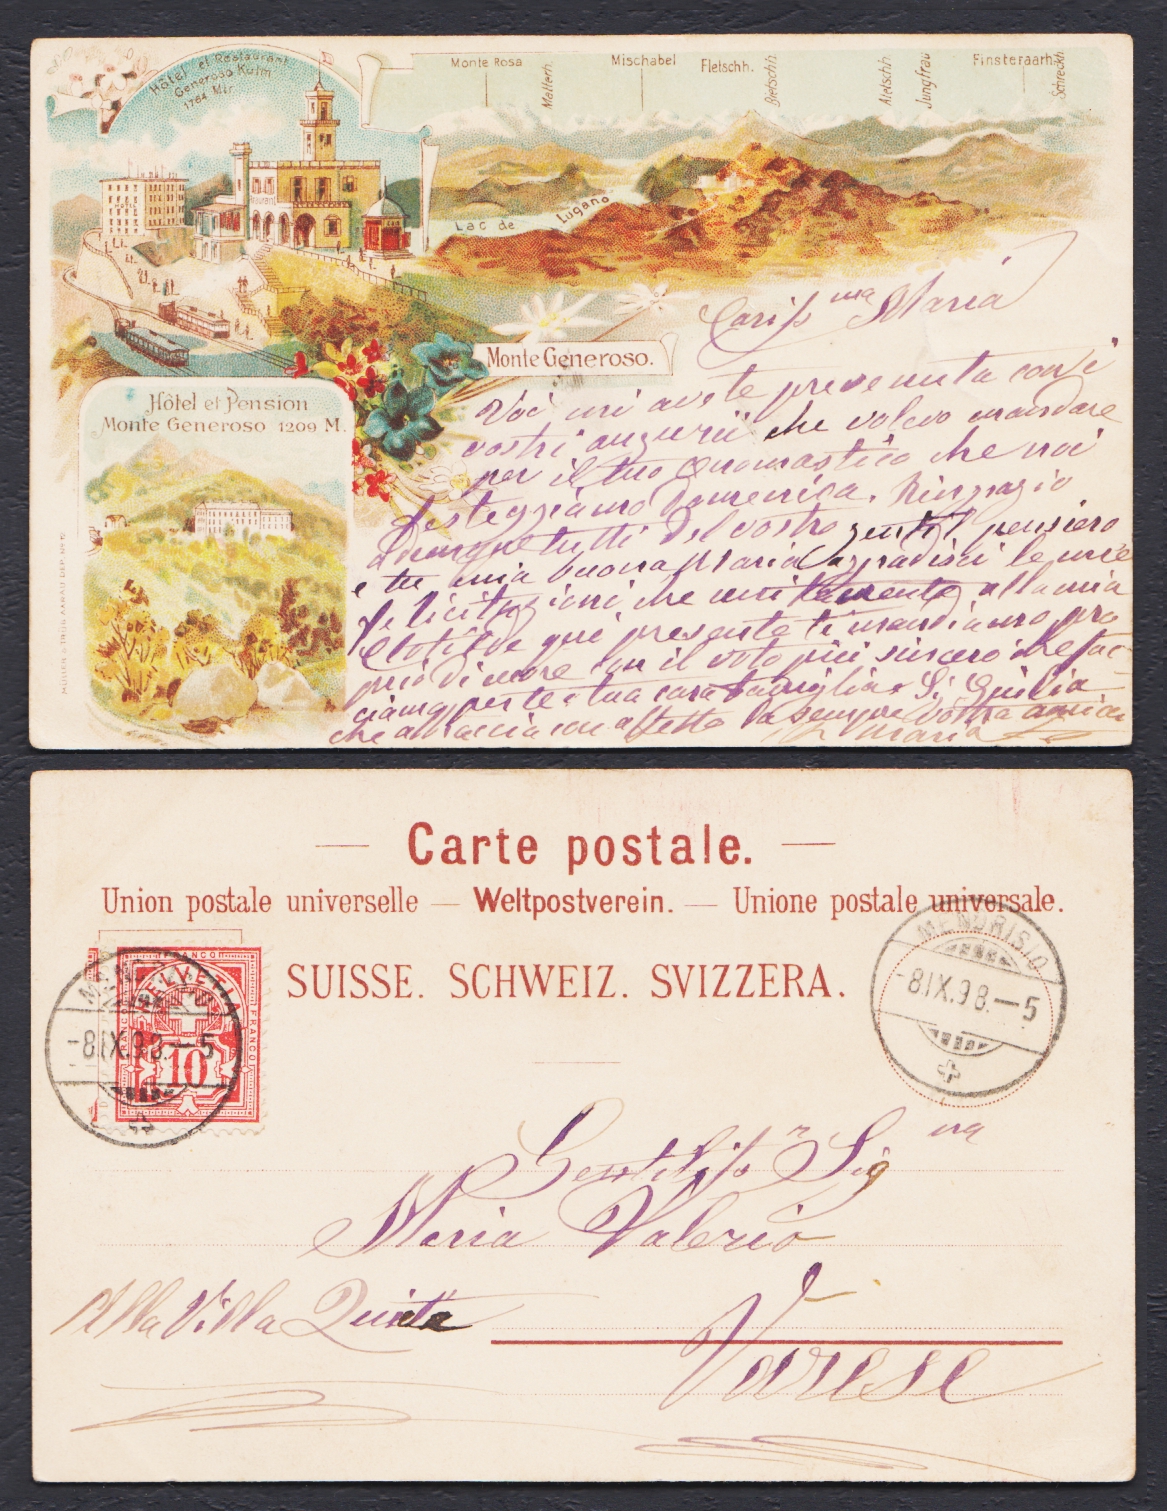 Hôtel et Restaurant
Generoso Kulm
1704 Mtr.
Monte Rosa
Matterh.
Mischabel
Fletschh.
Bietschh.
Aletschh.
Jungfrau
Finsteraarh.
Schreckh.
HOTEL
Lac de Lugano
Cariss.ma Maria
Monte Generoso.
Hôtel et Pension
Monte Generoso 1209 M.
Voi mi avete prevenuta con i
vostri augurii che volevo mandare
per il tuo Onomastico che noi
festeggiamo Domenica. Ringrazio
adunque tutti del vostro gentil pensiero
e tu mia buona Maria aggradisci le mie
felicitazioni che unitamente alla mia
Clotilde qui presente ti mandiamo pro
prio di cuore con il voto più sincero che fac
ciamo per te e tua cara famiglia. Giulia
che abbraccia con affetto la sempre vostra amica
Maria
Carte postale.
Union postale universelle — Weltpostverein. — Unione postale universale.
SUISSE. SCHWEIZ. SVIZZERA.
FRANCO
HELVETIA
FRANCO
FRANCO
10
MENDRISIO
-8IX.98.-5
MENDRISIO
-8IX.98.-5
Gentiliss.ma Sig.na
Maria Valerio
Alla Villa Quieta
Varese